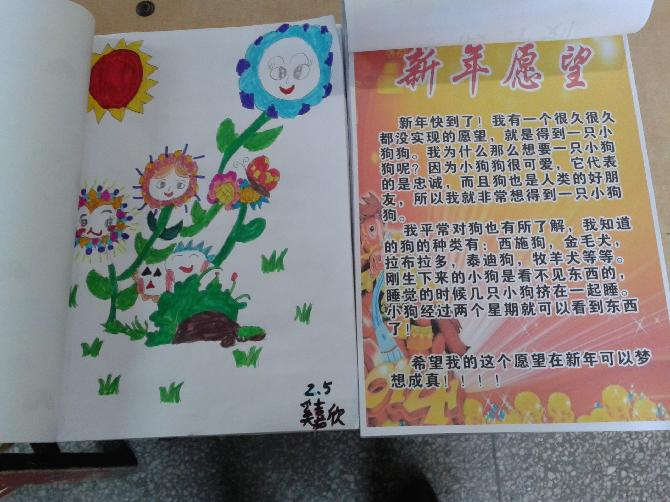 2.5
奚嘉欣
新年愿望
新年快到了！我有一个很久很久
都没实现的愿望，就是得到一只小
狗狗。我为什么那么想要一只小狗
狗呢？因为小狗狗很可爱，它代表
的是忠诚，而且狗也是人类的好朋
友，所以我就非常想得到一只小狗
狗。
我平常对狗也有所了解，我知道
的狗的种类有：西施狗，金毛犬，
拉布拉多，泰迪狗，牧羊犬等等。
刚生下来的小狗是看不见东西的，
睡觉的时候几只小狗挤在一起睡。
小狗经过两个星期就可以看到东西
了！
希望我的这个愿望在新年可以梦
想成真！！！！